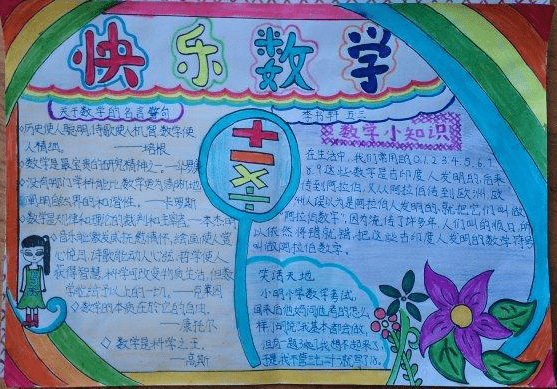 快乐数学
关于数学的名言警句
李书轩 五三
◇历史使人聪明,诗歌使人机智,数学使
人精细。 ——培根
◇数学是最宝贵的研究精神之一。——华罗庚
◇没有哪门学科能比数学更为清晰地
阐明自然界的和谐性。 ——卡罗斯
◇数学是规律和理论的裁判和主宰者——本杰明
◇音乐能激发或抚慰情怀,绘画使人赏
心悦目,诗歌能动人心弦,哲学使人
获得智慧,科学可改变物质生活,但数
学能给予以上的一切。 ——克莱因
◇数学的本质在于它的自由。
——康托尔
◇数学是科学之王。
——高斯
+ − × ÷
数学小知识
在生活中,我们常用的0.1.2.3.4.5.6.7
8.9这些数字是古印度人发明的,后来
传到阿拉伯,又从阿拉伯传到欧洲,欧
洲人误以为是阿拉伯人发明的,就把它们叫做
“阿拉伯数字”,因为流传了许多年,人们叫的顺口,所
以依然将错就错,把这些古印度人发明的数字符号
叫做阿拉伯数字。
笑话天地
小明小学数学考试,
回来后他妈问他考的怎么
样们问说:我基本都会做,
但有一题3乘7我想不起来了,
于是我不管三七二十一就写了18。